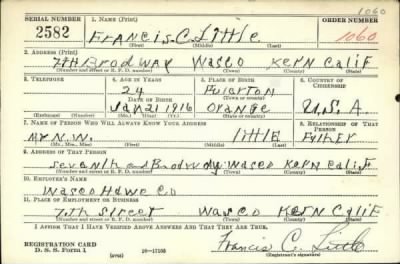 1060
SERIAL NUMBER 1. NAME (Print) ORDER NUMBER
2582 FRANCIS C. LITTLE 1060
(First) (Middle) (Last)
2. ADDRESS (Print)
7th Broadway Wasco Kern Calif
(Number and street or R. F. D. number) (Town) (County) (State)
3. TELEPHONE 4. AGE IN YEARS 5. PLACE OF BIRTH 6. COUNTRY OF CITIZENSHIP
24 Fullerton
DATE OF BIRTH (Town or county)
JAN 21 1916 Orange U.S.A.
(Exchange) (Number) (Mo.) (Day) (Yr.) (State or country)
7. NAME OF PERSON WHO WILL ALWAYS KNOW YOUR ADDRESS 8. RELATIONSHIP OF THAT PERSON
Mr. N. W. Little Father
(Mr., Mrs., Miss) (First) (Middle) (Last)
9. ADDRESS OF THAT PERSON
Seventh and Broadway Wasco Kern Calif
(Number and street or R. F. D. number) (Town) (County) (State)
10. EMPLOYER'S NAME
Wasco Hdwe Co
11. PLACE OF EMPLOYMENT OR BUSINESS
7th Street Wasco Kern Calif
(Number and street or R. F. D. number) (Town) (County) (State)
I AFFIRM THAT I HAVE VERIFIED ABOVE ANSWERS AND THAT THEY ARE TRUE.
REGISTRATION CARD
D. S. S. Form 1 (over) Francis C. Little
(Registrant's signature)